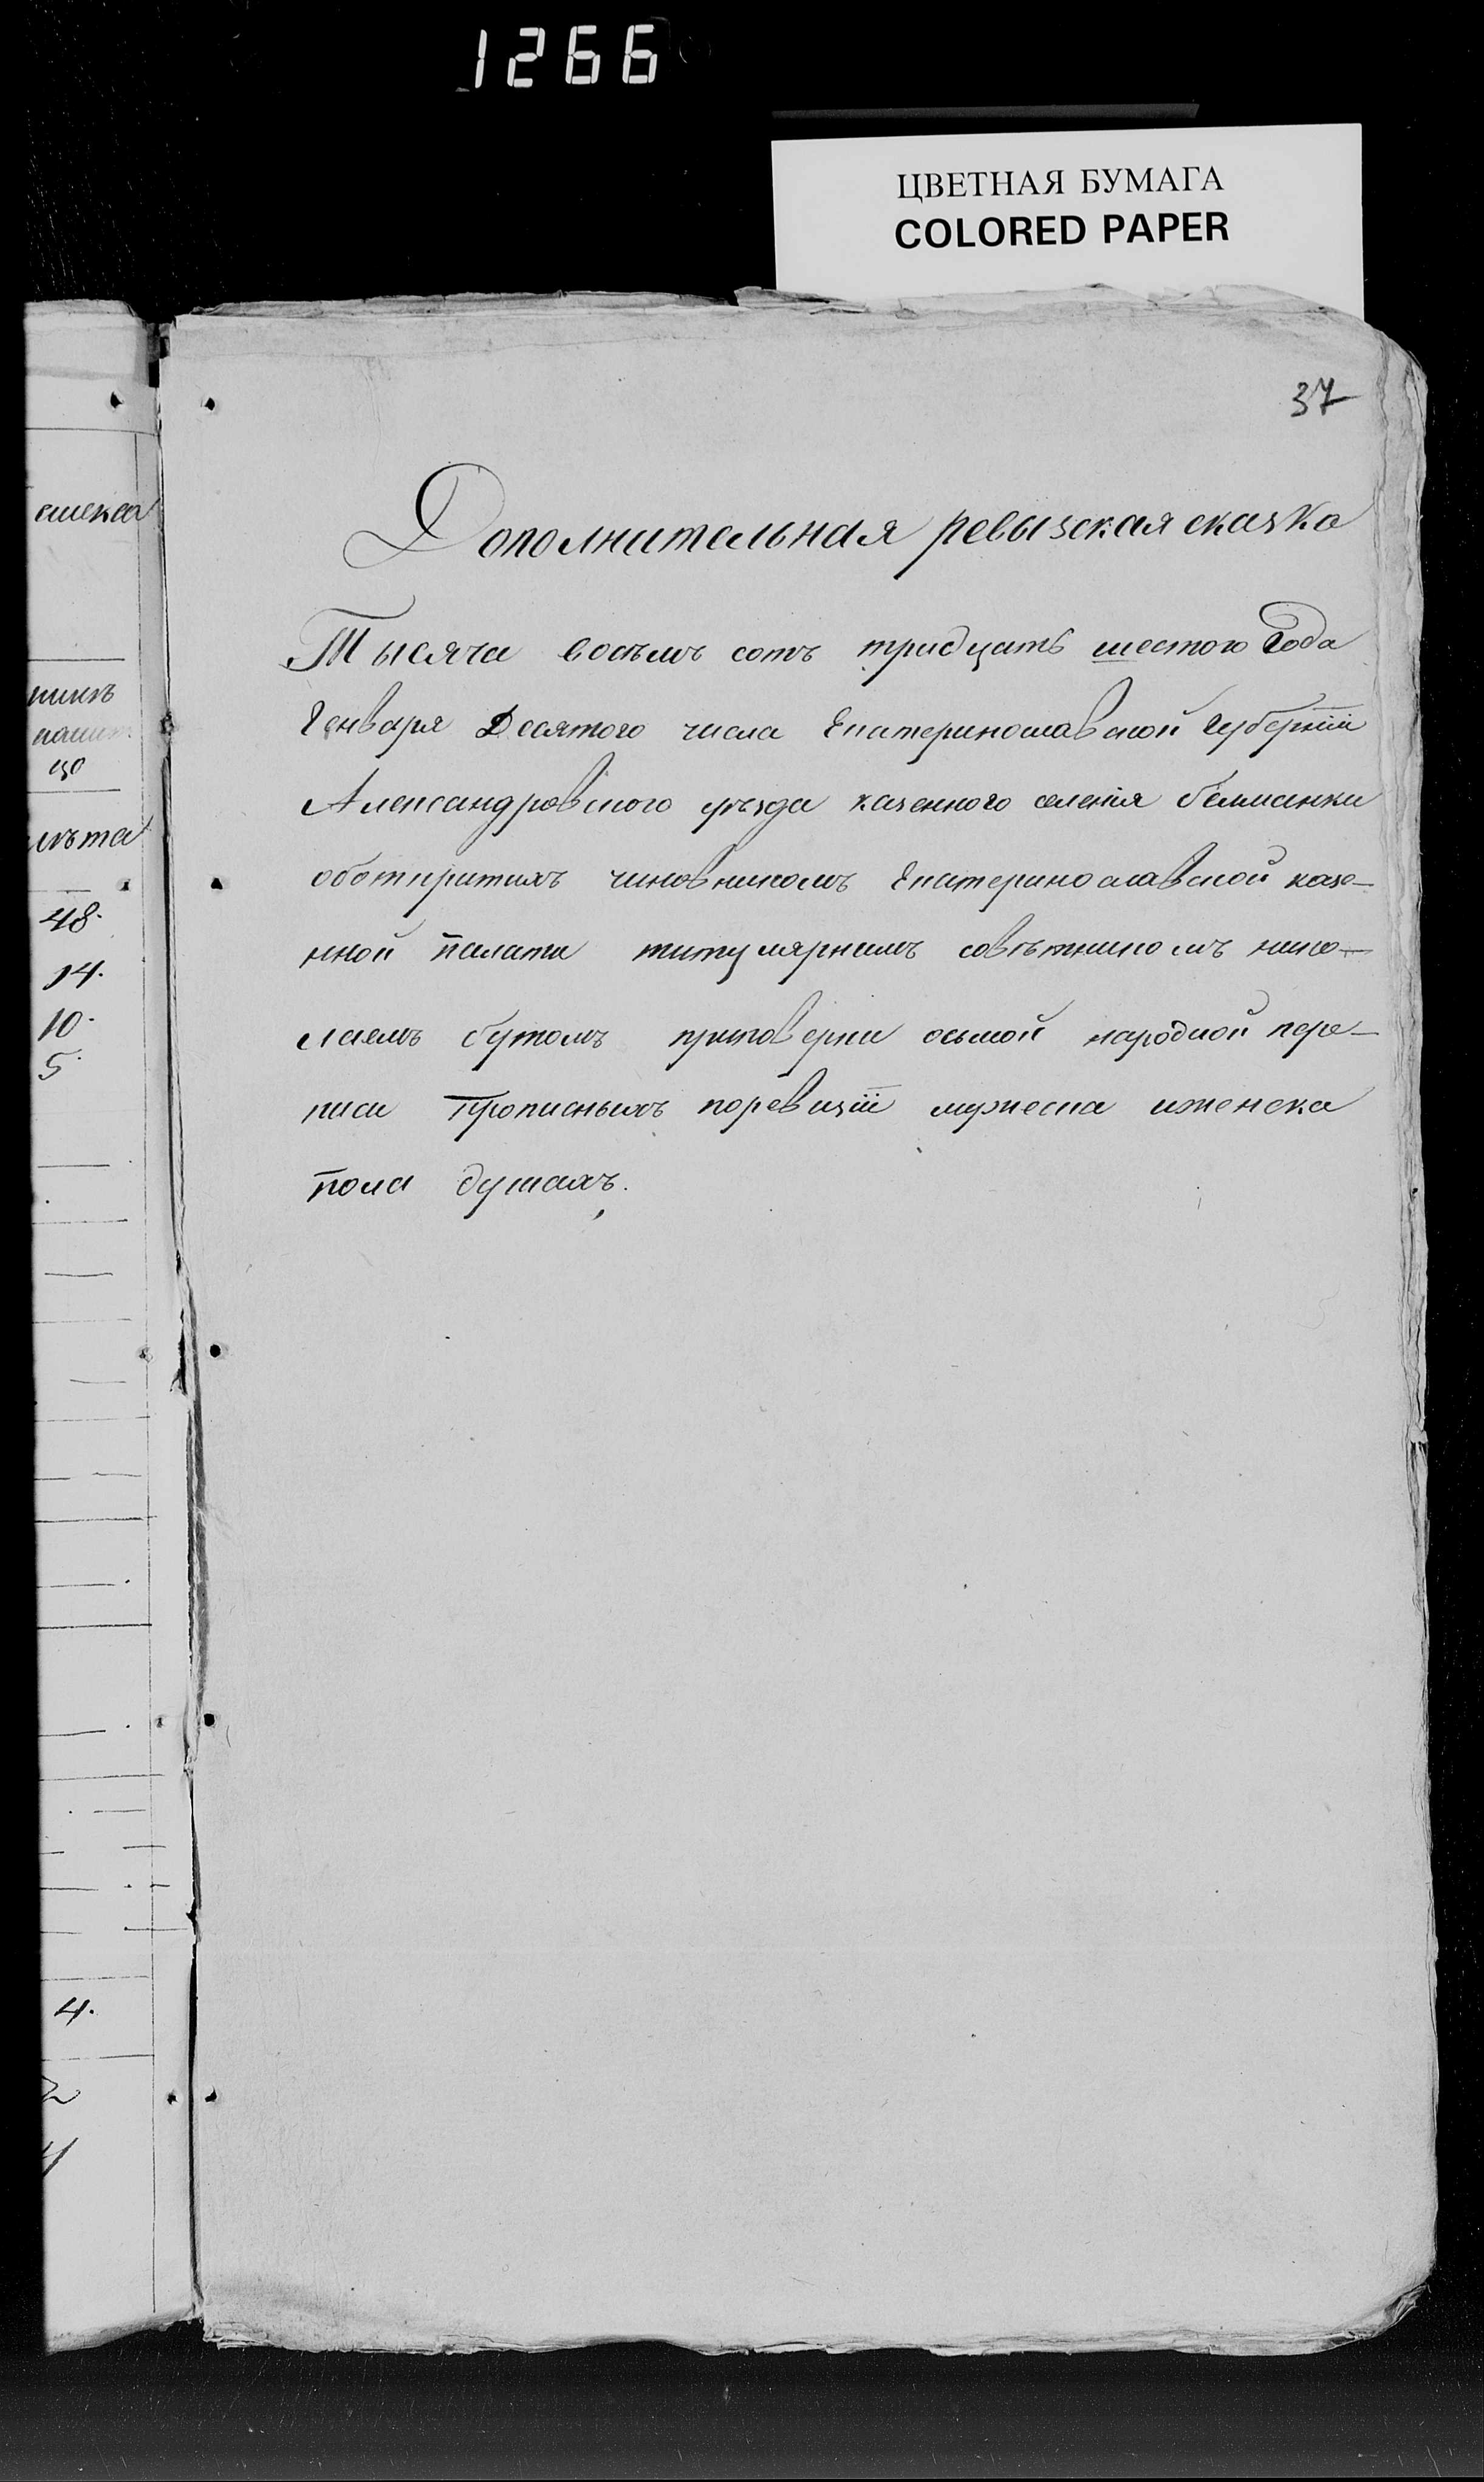 1266
ЦВЕТНАЯ БУМАГА
COLORED PAPER
37
Дополнительная ревызская сказка
Тысяча восемъ сотъ тридцать шестого Года
Генваря Десятого числа Екатеринославской Губернiи
Александровского уѣзда казенного селенiя белманки
оботкритихъ чиновникомъ Екатеринославской казе-
нной палати титулярнимъ совѣтникомъ нико-
лаемъ бутомъ приповерки осьмой народной пере-
писи Прописныхъ поревизiи мужеска иженска
пола душахъ.
лѣта
48.
14.
10.
5.
4.